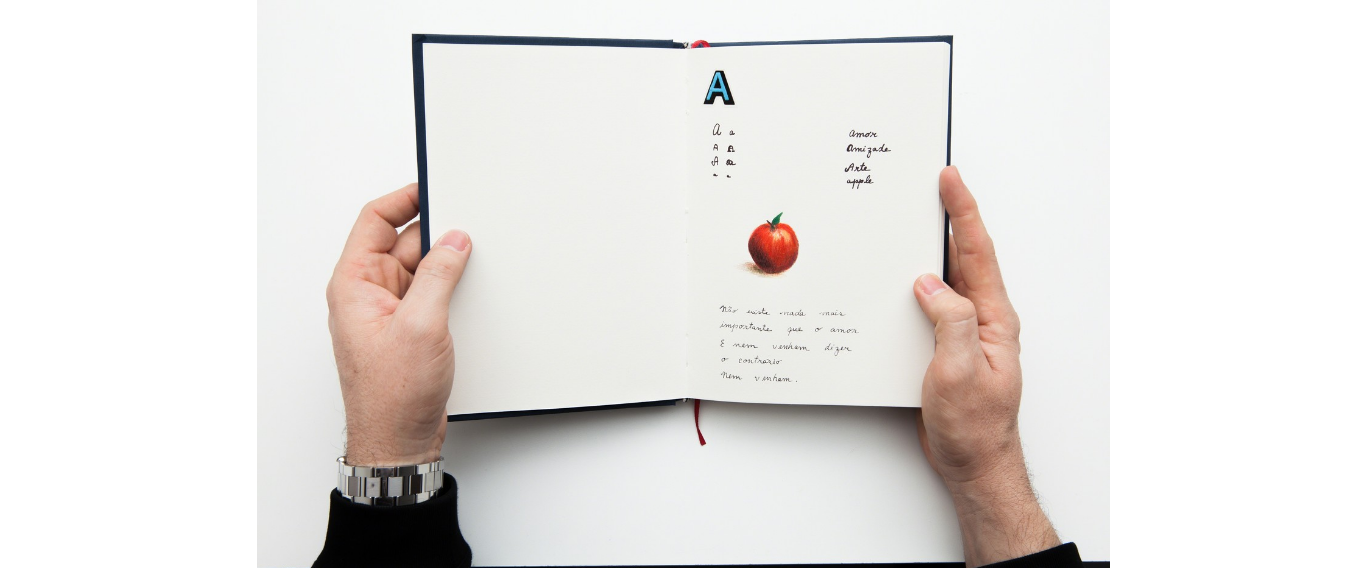 A
A a amor
A a Amizade
A a Arte
a a apple
Não existe nada mais
importante que o amor
E nem venham dizer
o contrário
Nem venham.